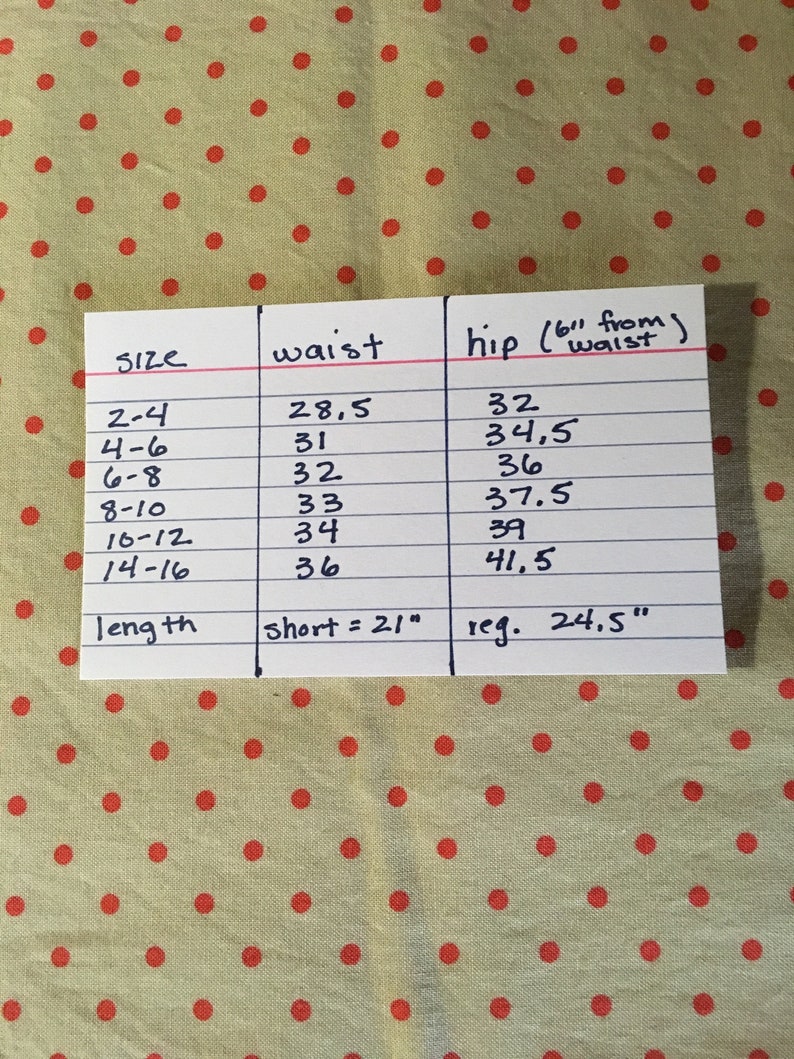 size waist hip (6" from waist)
2-4 28.5 32
4-6 31 34.5
6-8 32 36
8-10 33 37.5
10-12 34 39
14-16 36 41.5
length short = 21" reg. 24.5"